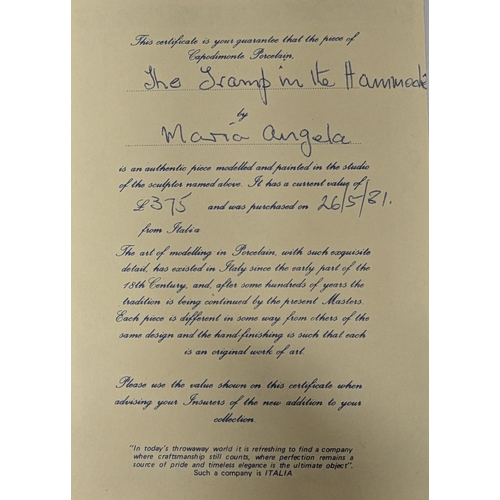 This certificate is your guarantee that the piece of
Capodimonte Porcelain,
The Tramp in the Hammock
by
Maria Angela
is an authentic piece modelled and painted in the studio
of the sculptor named above. It has a current value of
£375 and was purchased on 26/5/81.
from Italia
The art of modelling in Porcelain, with such exquisite
detail, has existed in Italy since the early part of the
18th Century, and, after some hundreds of years the
tradition is being continued by the present Masters.
Each piece is different in some way from others of the
same design and the hand-finishing is such that each
is an original work of art.
Please use the value shown on this certificate when
advising your Insurers of the new addition to your
collection.
"In today's throwaway world it is refreshing to find a company
where craftsmanship still counts, where perfection remains a
source of pride and timeless elegance is the ultimate object".
Such a company is ITALIA